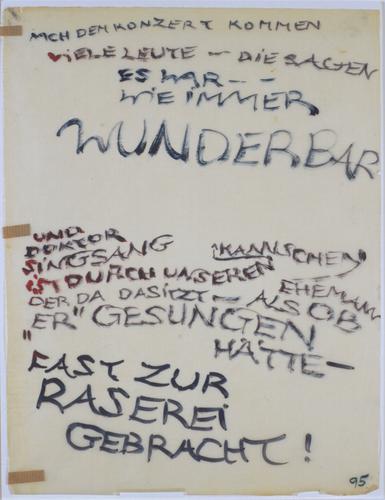 NACH DEM KONZERT KOMMEN
VIELE LEUTE — DIE SAGEN
ES WAR - -
WIE IMMER
WUNDERBAR
UND
DOKTOR
SINGSANG "KANNSCHEN"
IST DURCH UNSEREN EHEMANN
DER DA DASITZT — ALS OB
ER "GESUNGEN
HÄTTE —
"FAST ZUR
RASEREI
GEBRACHT!
95